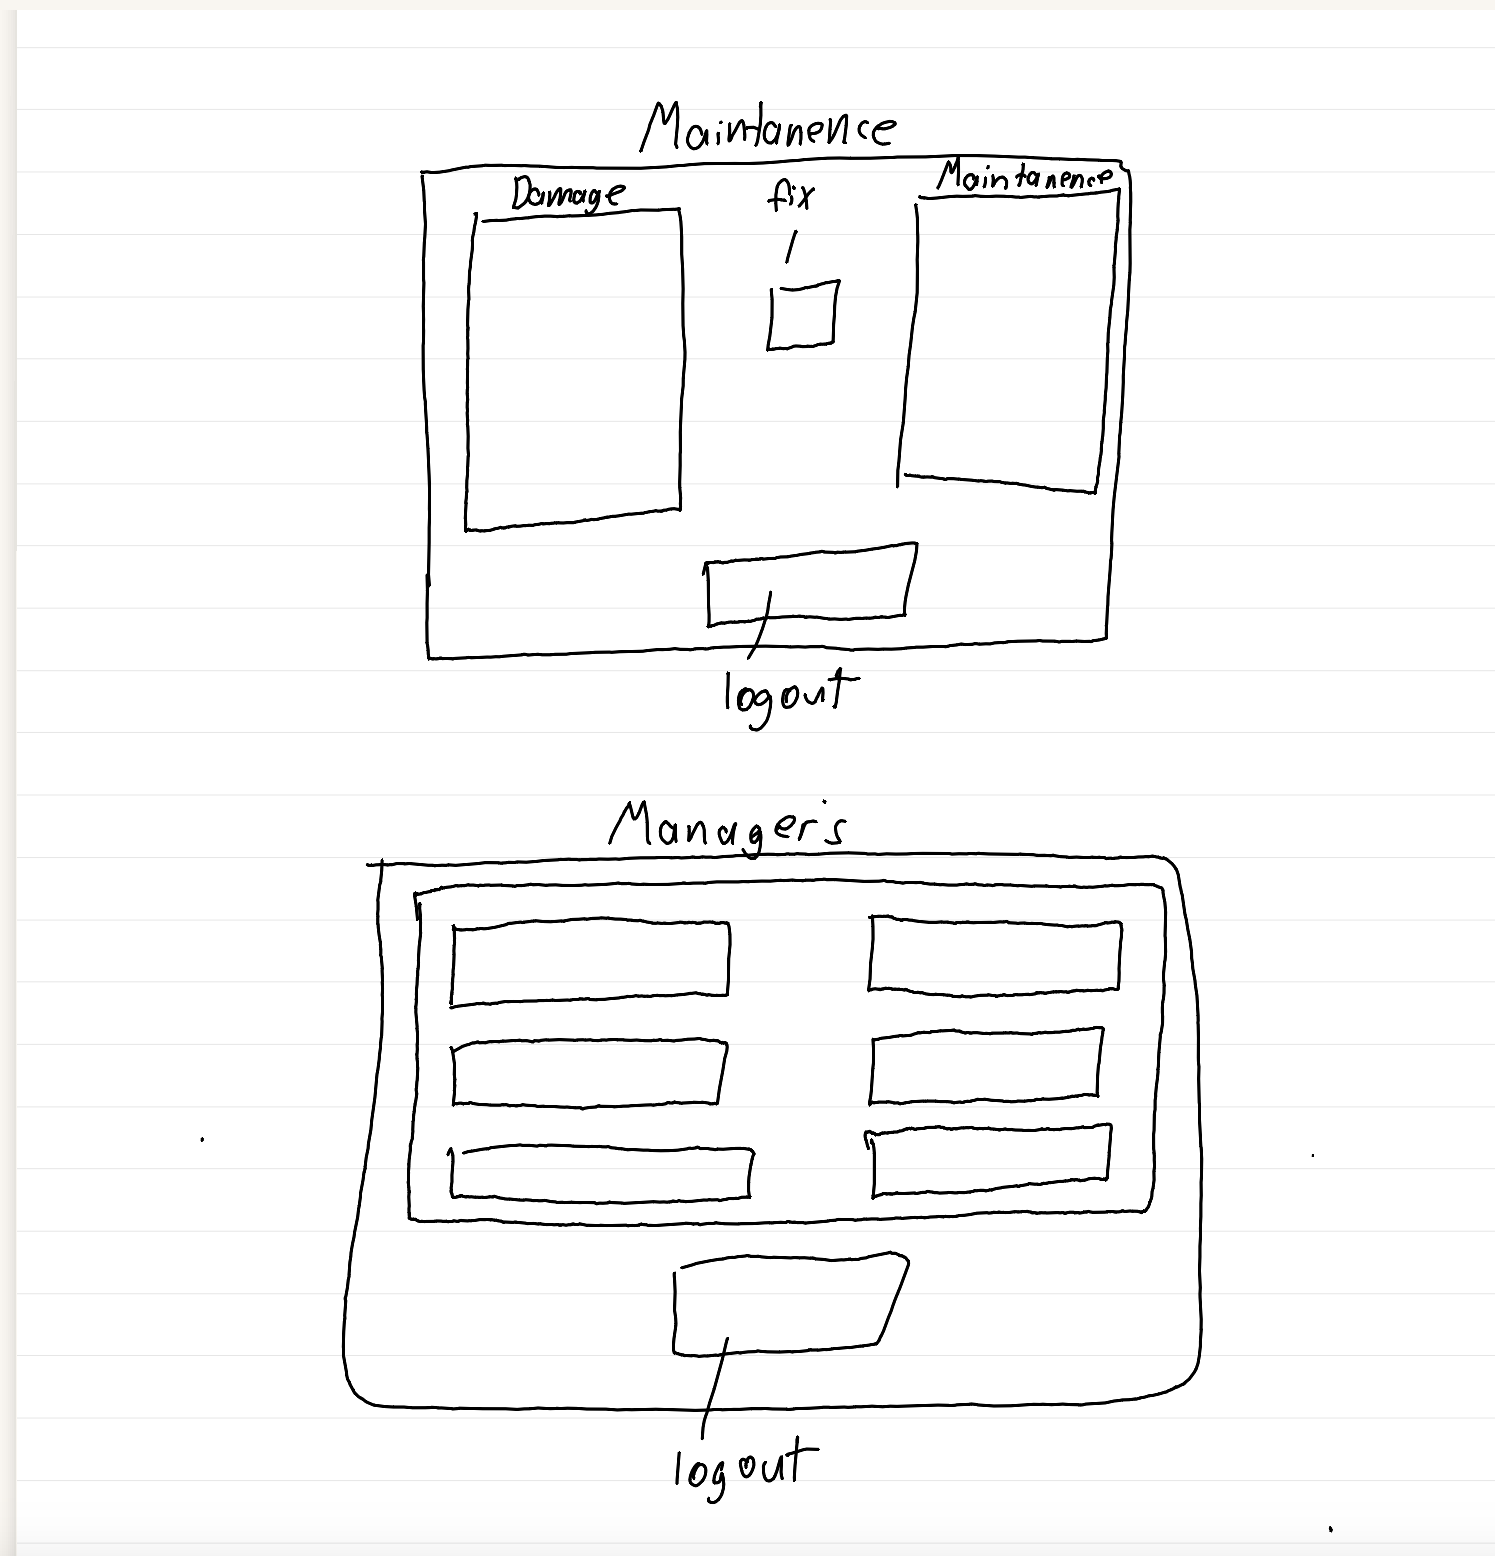 Maintanence
Damage
fix
Maintanence
logout
Manager's
logout